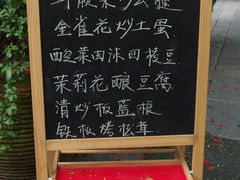 金雀花炒土蛋
酸菜肉沫四棱豆
茉莉花酿豆腐
清炒板蓝根
铁板烤松茸